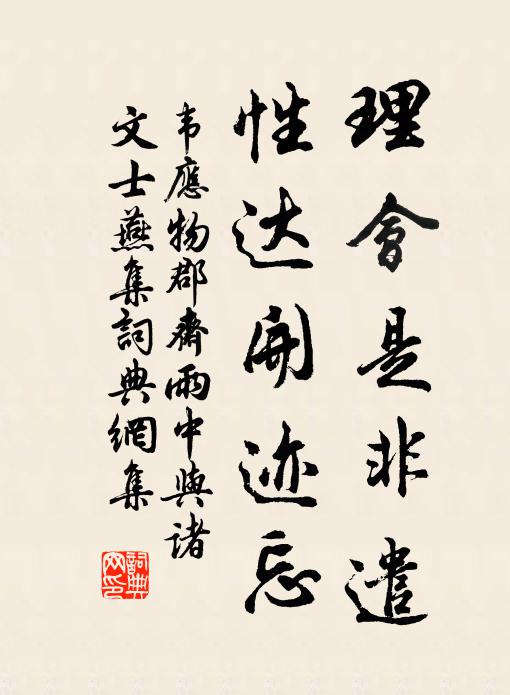 理會是非遣
性达開迹忘
韦應物郡齋雨中與諸
文士燕集詞典網集
詞典網印